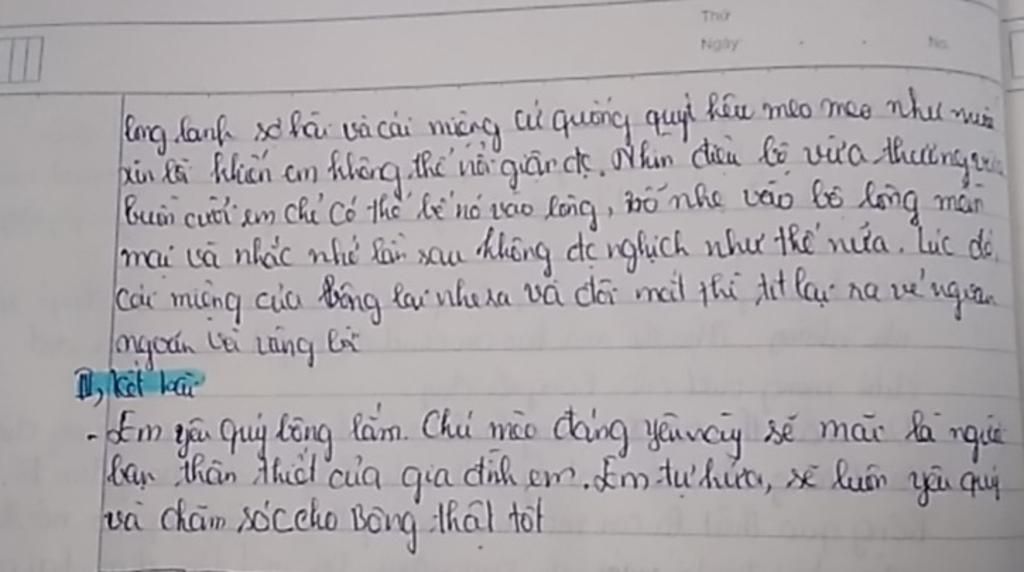 Thứ
Ngày No.
long lanh sợ hãi và cái miệng cứ quống quýt kêu meo meo như muốn
xin lỗi khiến em không thể nổi giận đc. Nhìn điệu bộ vừa thương vừa
buồn cười em chỉ có thể bế nó vào lòng, vỗ nhẹ vào bộ lông mền
mại và nhắc nhở lần sau không đc nghịch như thế nữa. Lúc đó,
cái miệng của Bông lại nhe ra và đôi mắt thì tít lại ra vẻ ngoan
ngoãn và vâng lời
III, kết bài
- Em yêu quý bông lắm. Chú mèo đáng yêu này sẽ mãi là người
bạn thân thiết của gia đình em. Em tự hứa, sẽ luôn yêu quý
và chăm sóc cho Bông thật tốt